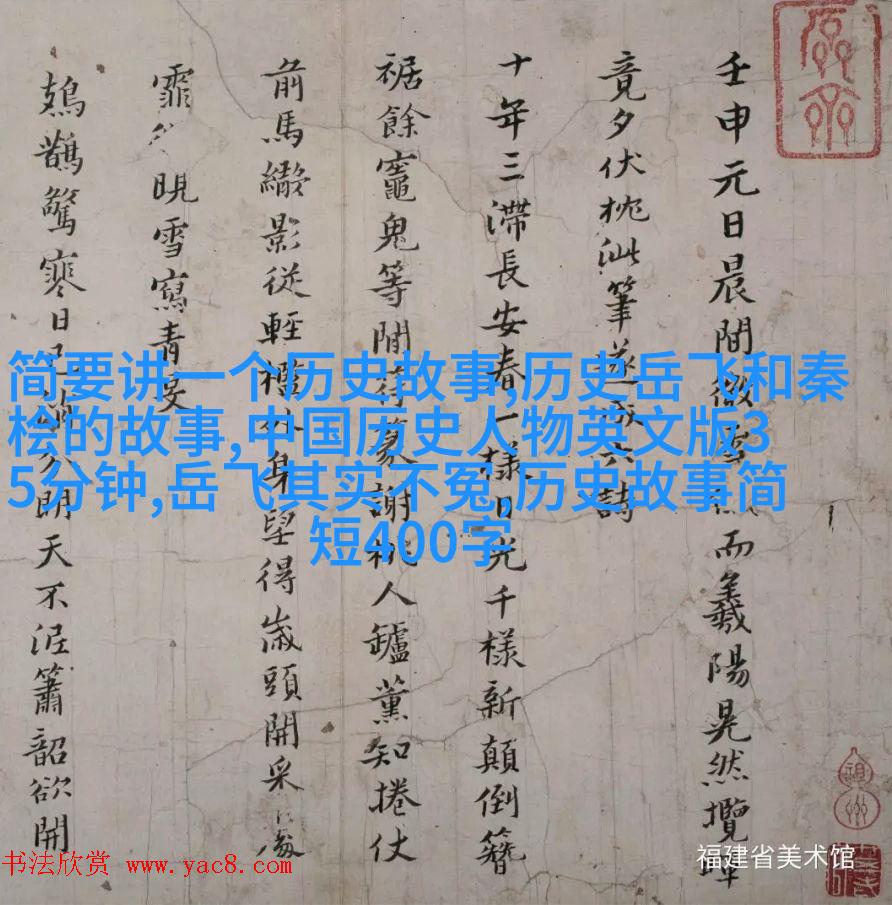 壬申元日晨間微雪
而羲陽晃然攬
竟夕伏枕泚筆遂
六詩
十年三滯長安春一樣
光千樣新顛倒簪
裾餘竈鬼等閒
篆謝桃人鑪薰知捲仗
前馬繖影從輕
身望得歲頭開采
霏
晛雪寫青旻
鵁鵲驚寒日
明天不涇簫韶欲開
简要讲一个历史故事,历史岳飞和秦
桧的故事,中国历史人物英文版3
5分钟,岳飞其实不冤,历史故事简
短400字
书法欣赏 www.yac8.com
福建省美术馆